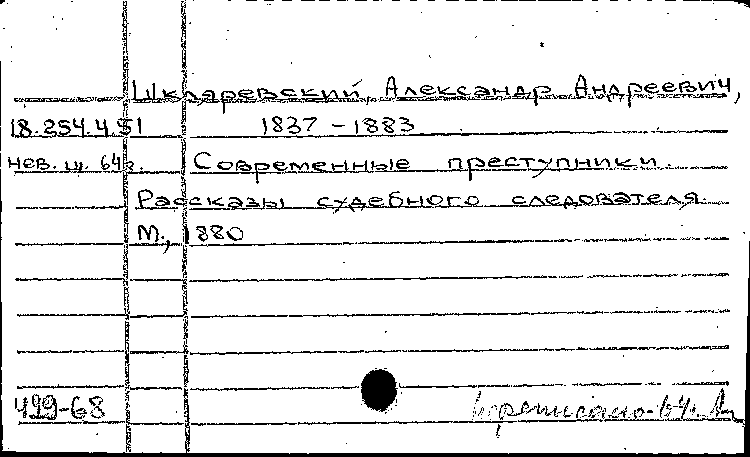 Шкляревский, Александр Андреевич,
18.254.4.51 1837 - 1883
нев. ш. 64г. Современные преступники.
Рассказы судебного следователя.
М., 1880
499-68 переписано-64г.